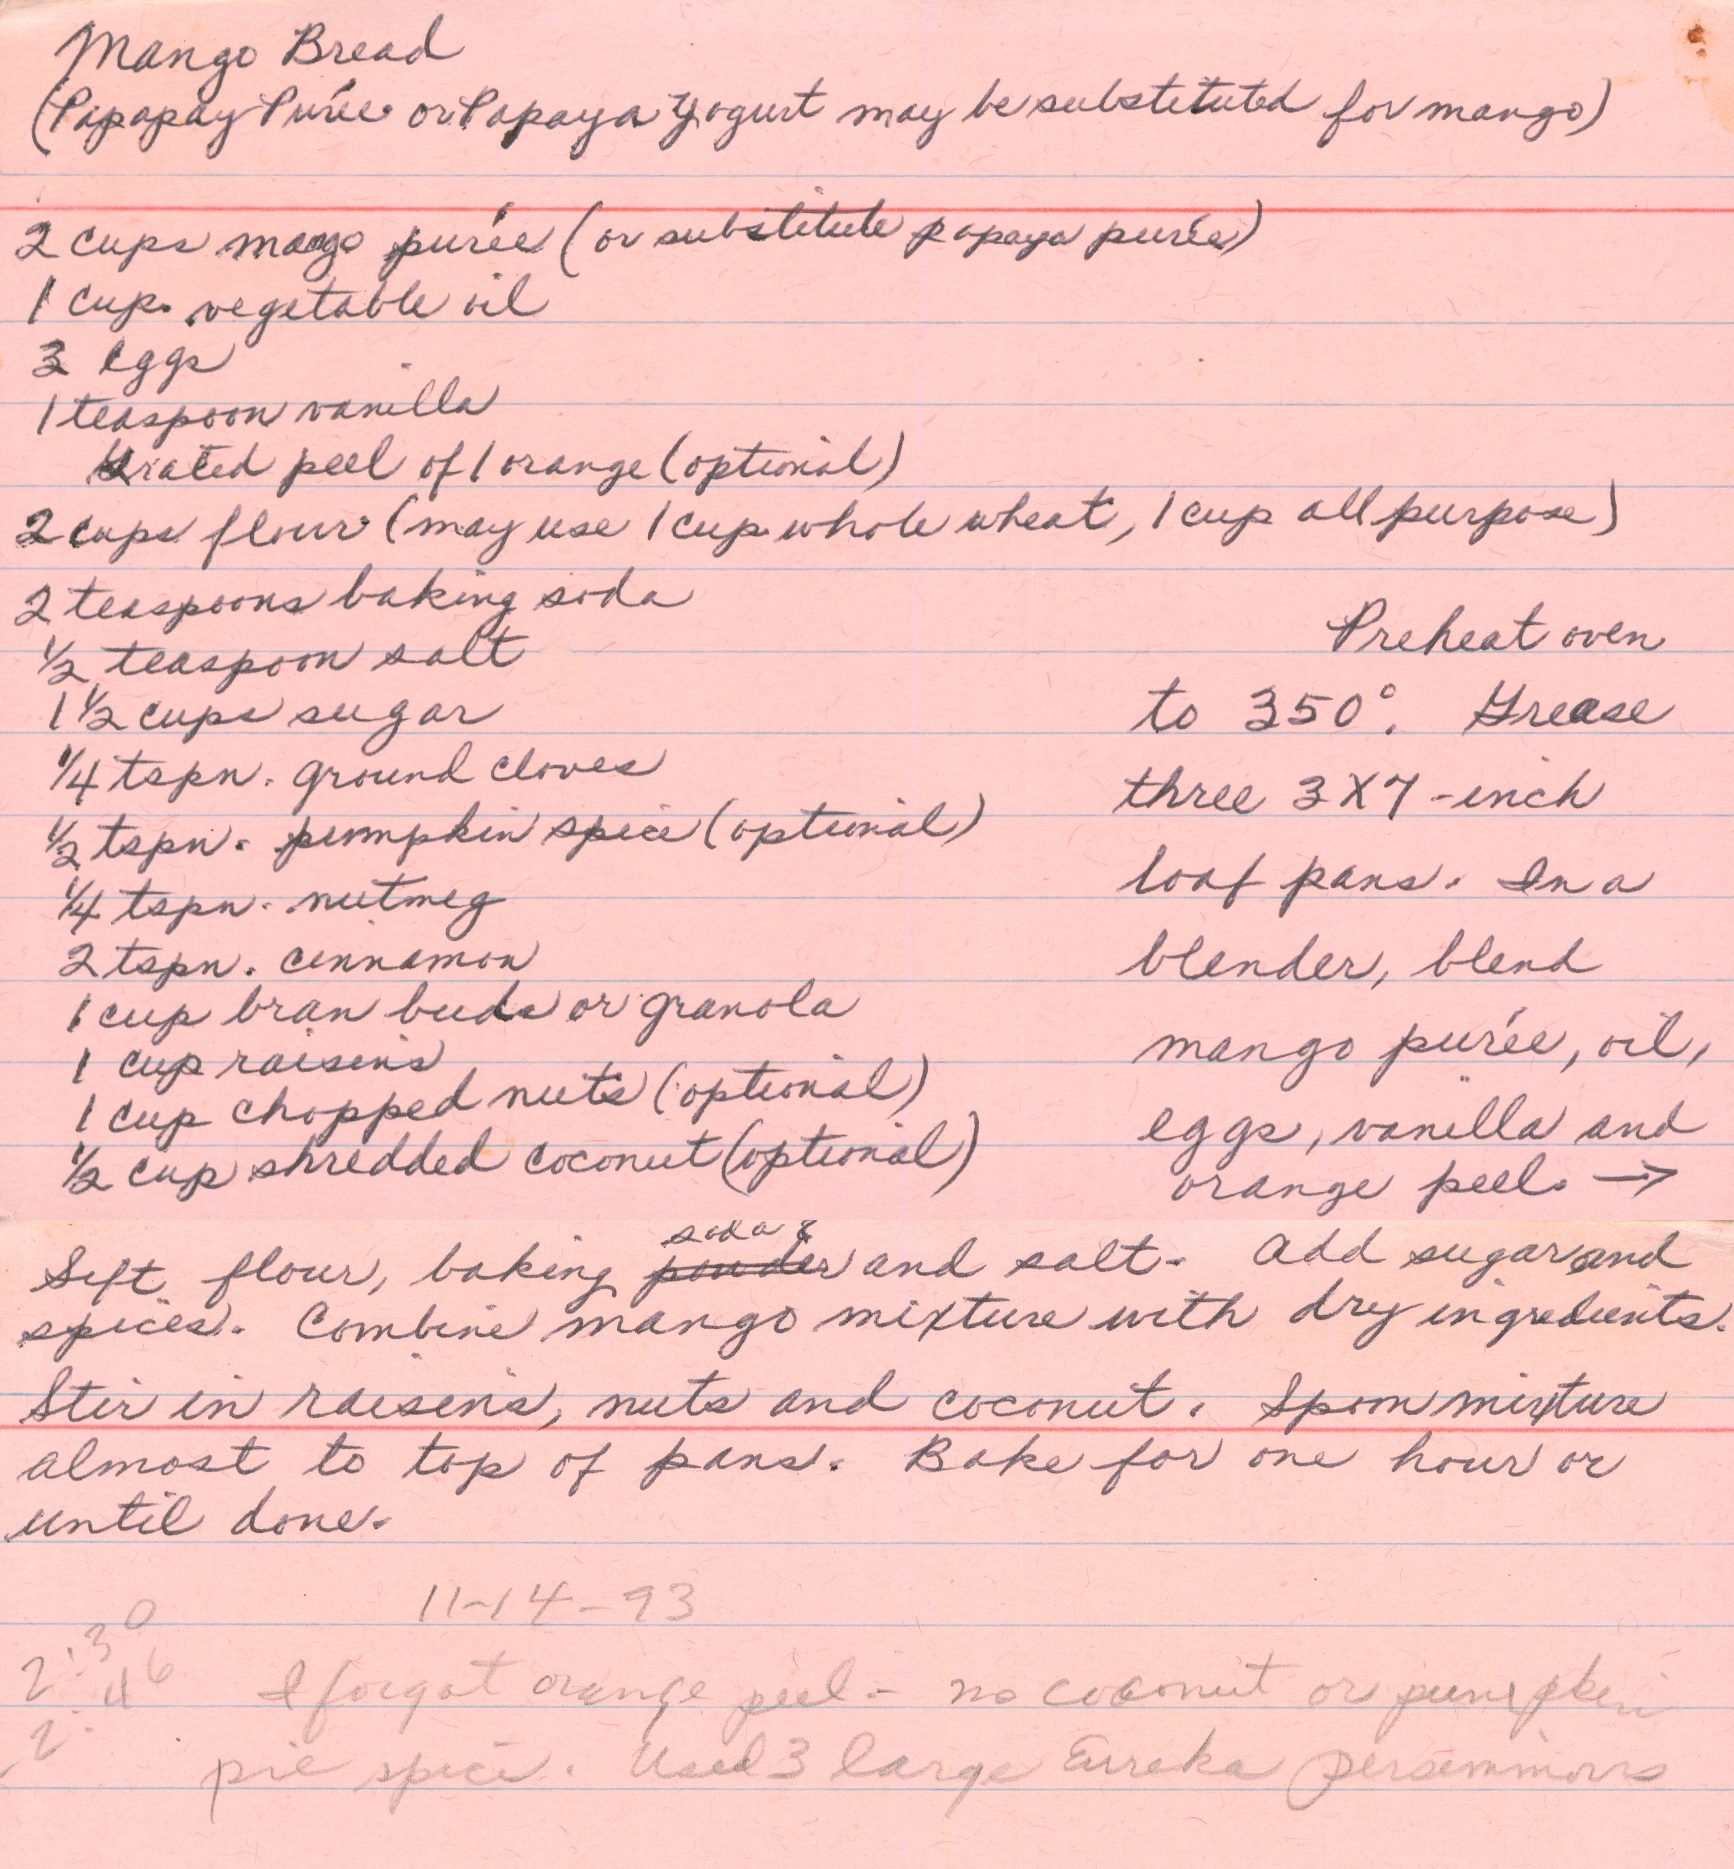 Mango Bread
(Papapay Purée or Papaya Yogurt may be substituted for mango)
2 cups mango purée (or substitute papaya purée)
1 cup vegetable oil
3 eggs
1 teaspoon vanilla
Grated peel of 1 orange (optional)
2 cups flour (may use 1 cup whole wheat, 1 cup all purpose)
2 teaspoons baking soda
1/2 teaspoon salt
1 1/2 cups sugar
1/4 tspn. ground cloves
1/2 tspn. pumpkin spice (optional)
1/4 tspn. nutmeg
2 tspn. cinnamon
1 cup bran buds or granola
1 cup raisins
1 cup chopped nuts (optional)
1/2 cup shredded coconut (optional)
Preheat oven
to 350°. Grease
three 3X7-inch
loaf pans. In a
blender, blend
mango purée, oil,
eggs, vanilla and
orange peel. →
soda &
Sift flour, baking powder and salt. Add sugar and
spices. Combine mango mixture with dry ingredients.
Stir in raisins, nuts and coconut. Spoon mixture
almost to top of pans. Bake for one hour or
until done.
11-14-93
2:30
2:46
I forgot orange peel - no coconut or pumpkin
pie spice. Used 3 large Eureka persimmons